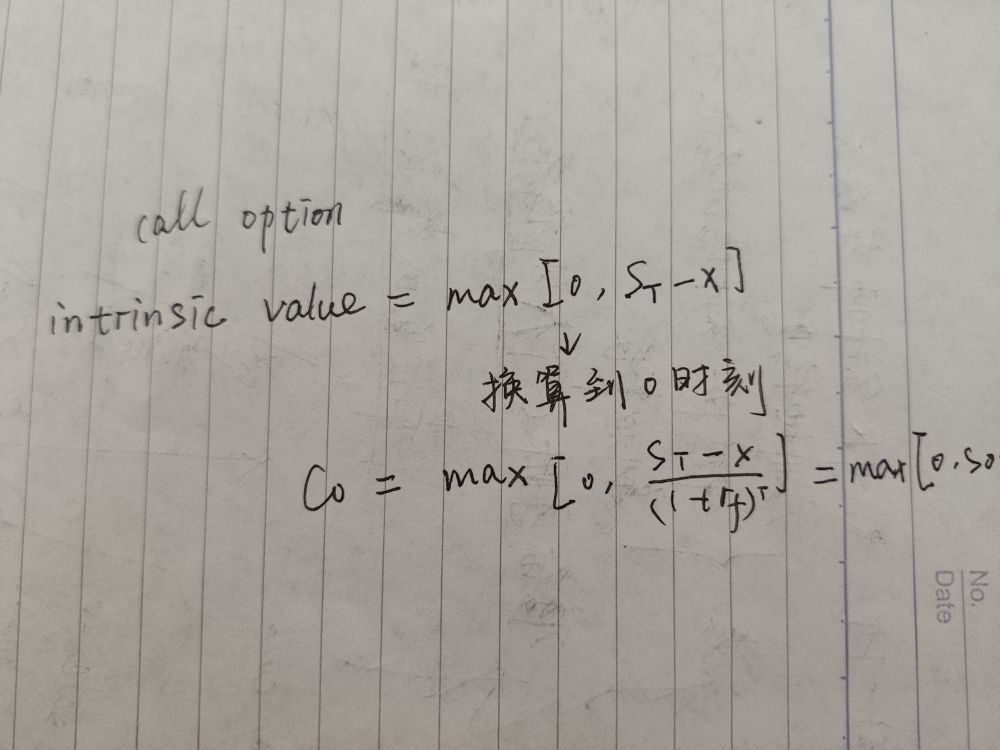 call option
intrinsic value = max [0, S_T - X]
↓
换算到0时刻
C_0 = max [0, \frac{S_T - X}{(1+r_f)^T}] = max [0, S_0
No.
Date